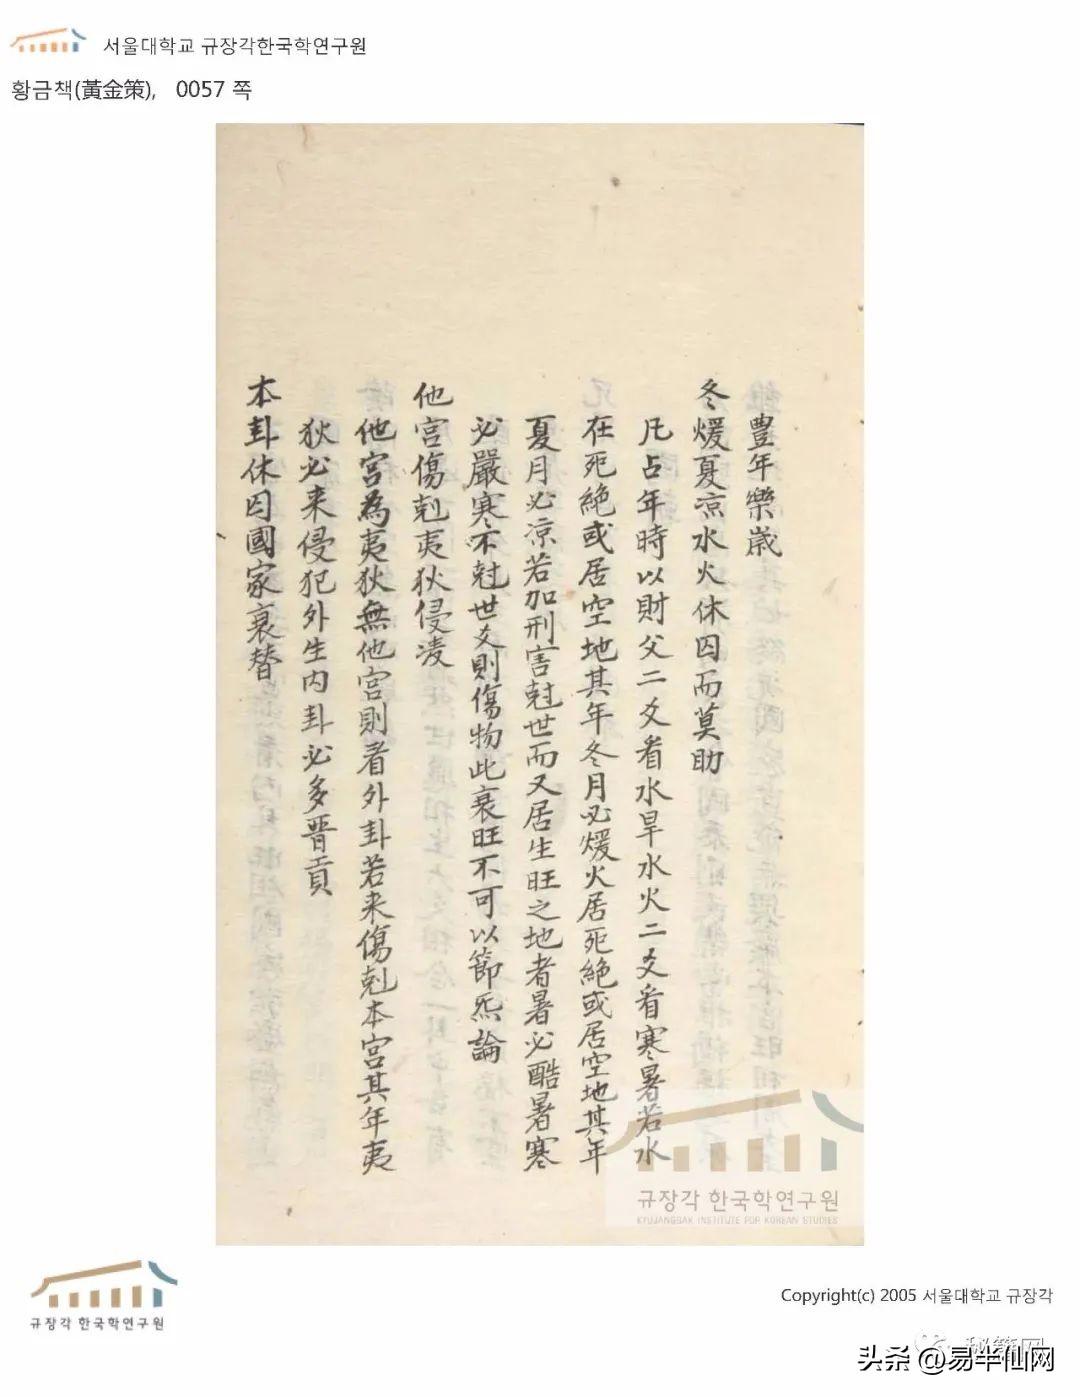 서울대학교 규장각한국학연구원
황금책(黃金策), 0057 쪽
豊年樂歲
冬煖夏凉水火休囚而莫助
凡占年時以財父二爻看水旱水火二爻看寒暑若水
在死絶或居空地其年冬月必煖火居死絶或居空地其年
夏月必凉若加刑害尅世而又居生旺之地者暑必酷暑寒
必嚴寒不尅世爻則傷物此衰旺不可以節炁論
他宮傷剋夷狄侵凌
他宮為夷狄無他宮則看外卦若来傷剋本宮其年夷
狄必来侵犯外生内卦必多晋貢
本卦休囚國家衰替
규장각 한국학연구원
KYUJANGGAK INSTITUTE FOR KOREAN STUDIES
규장각 한국학연구원
Copyright(c) 2005 서울대학교 규장각
秘籍网
头条 @易半仙网